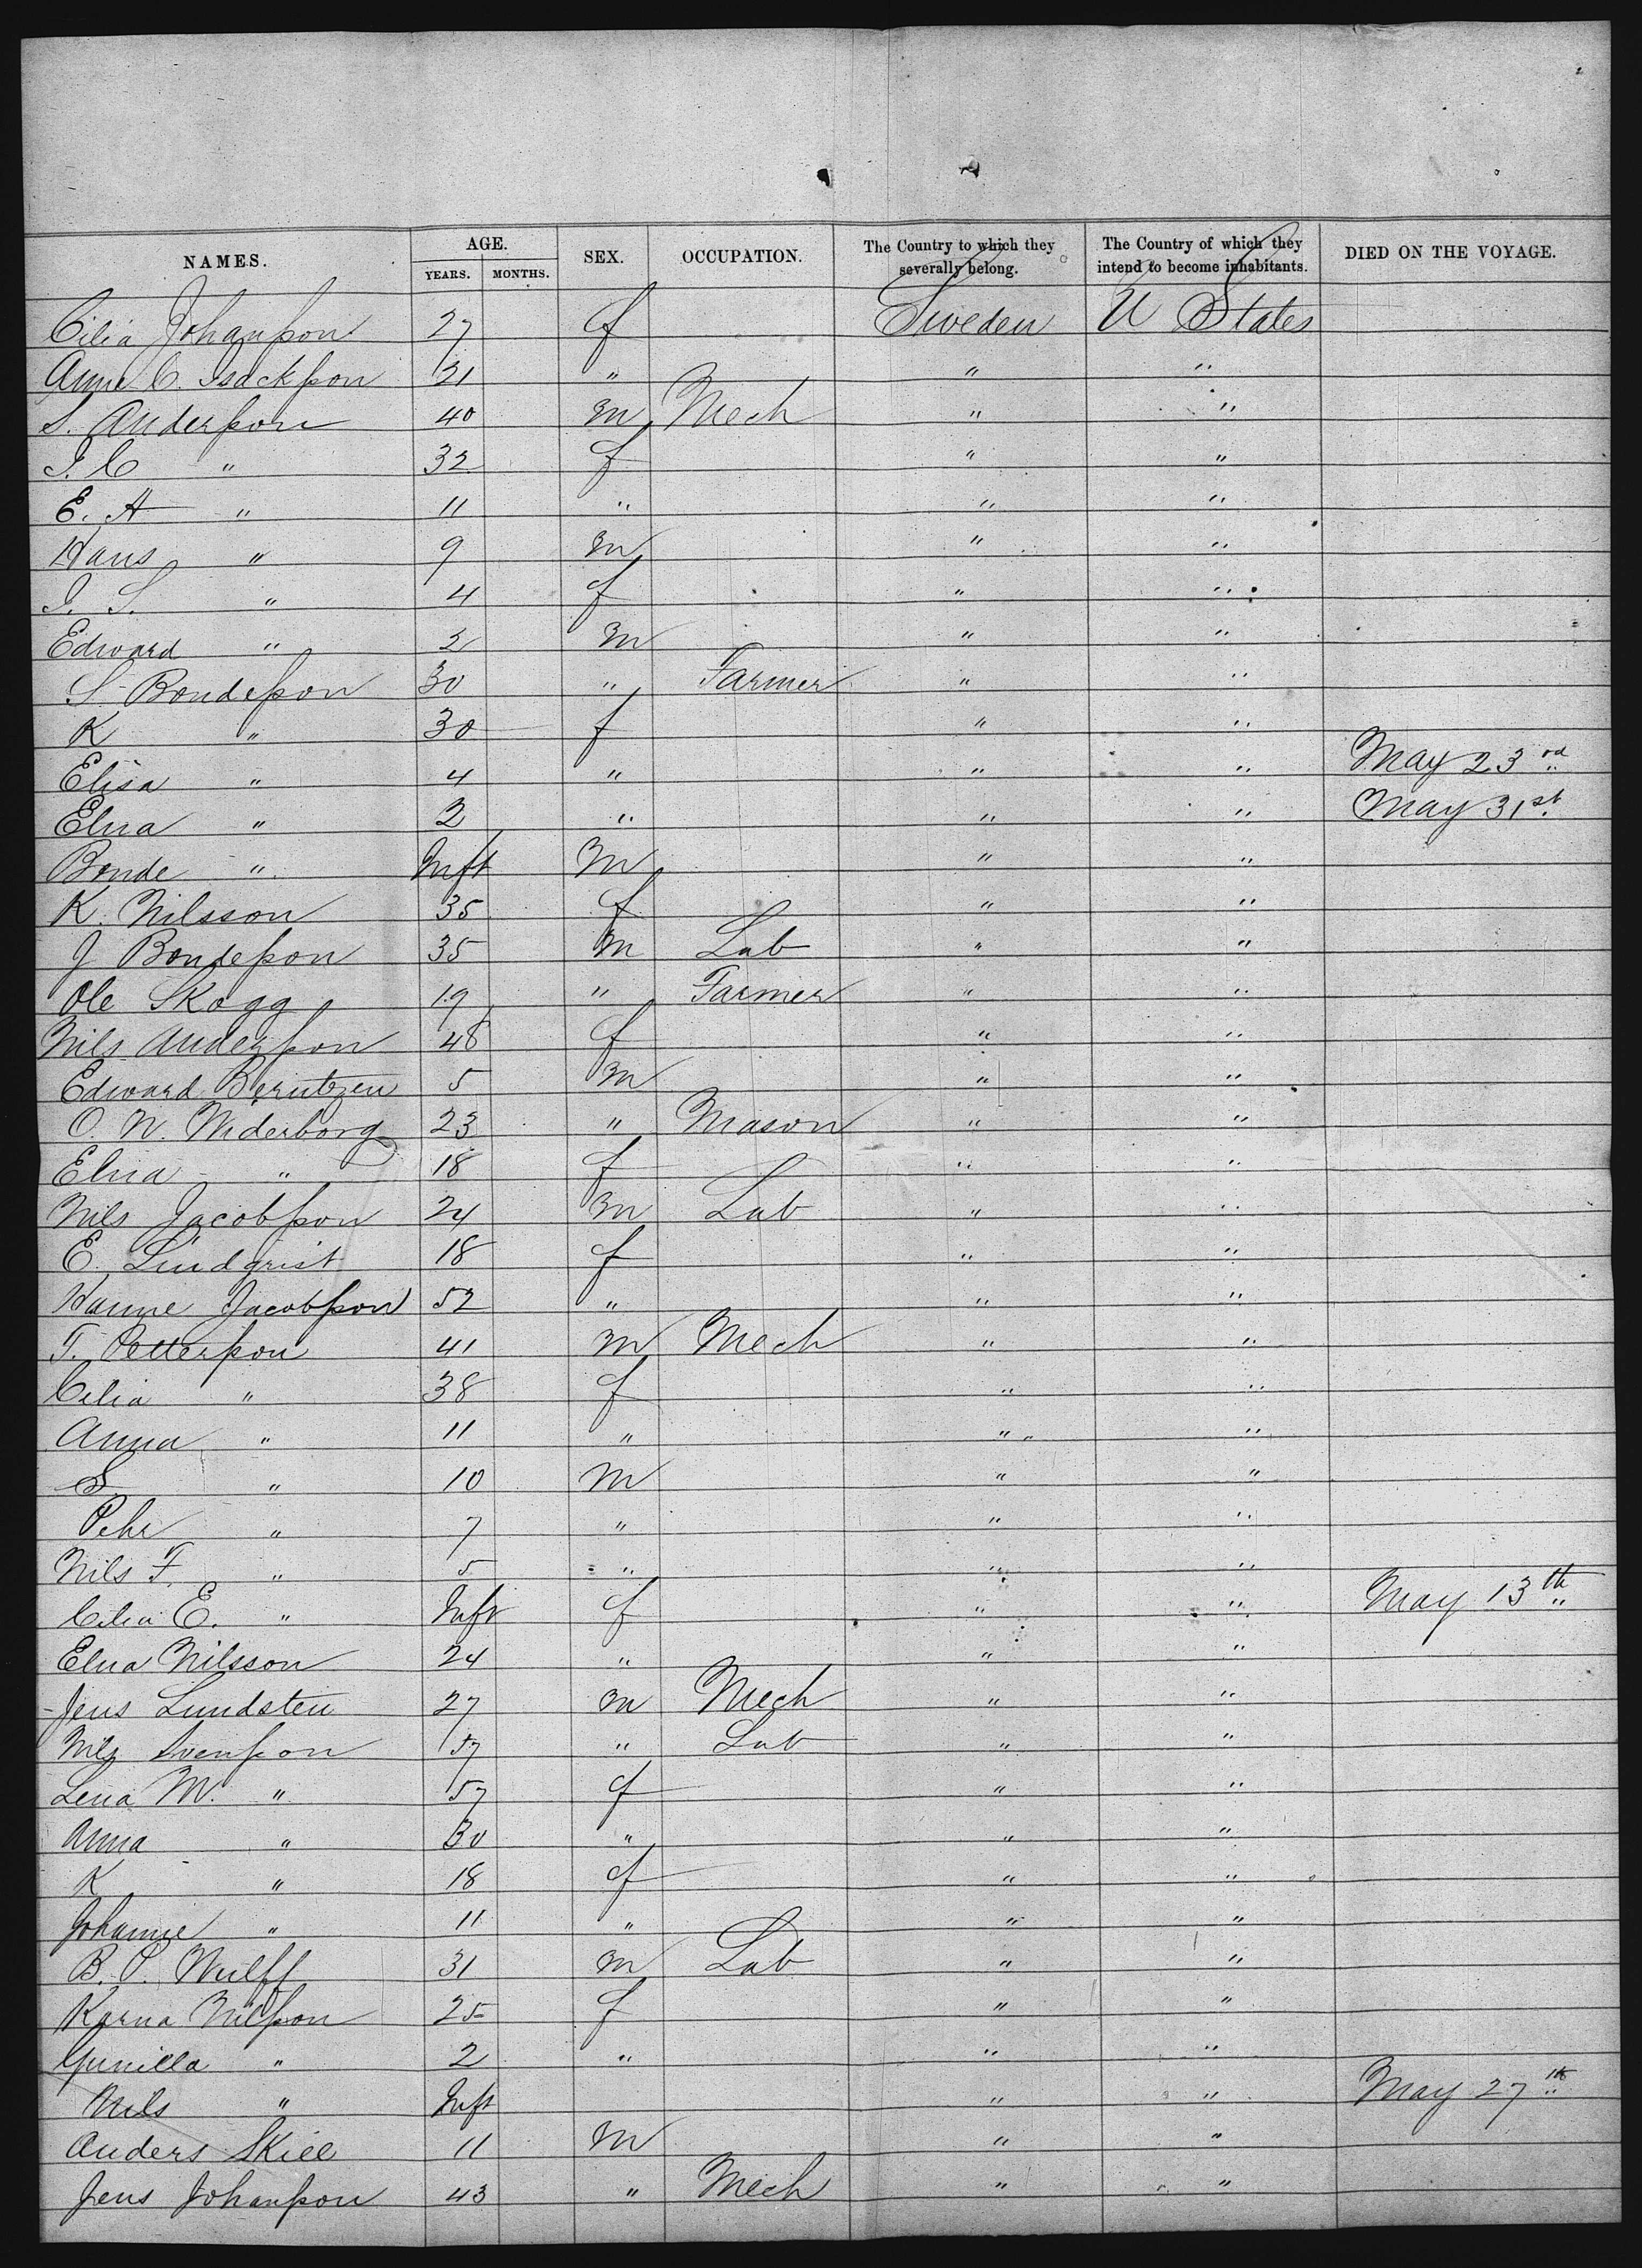 NAMES. AGE. SEX. OCCUPATION. The Country to which they severally belong. The Country of which they intend to become inhabitants. DIED ON THE VOYAGE.
YEARS. MONTHS.
Cilia Johansson 27 f Sweden U States
Anna C. Isackson 21 " " "
S. Andersson 40 m Mech " "
J. C " 32 f " "
E. A " 11 " " "
Hans " 9 m " "
J. S. " 4 f " "
Edward " 2 m " "
S. Bondesson 30 " Farmer " "
K " 30 f " "
Elisa " 4 " " " May 23rd
Elna " 2 " " " May 31st
Bonde " Inft m " "
K. Nilsson 35 f " "
J Bondesson 35 m Lab " "
Ole Skogg 19 " Farmer " "
Nils Andersson 48 f " "
Edward Berntzen 5 m " "
O. N. Widerborg 23 " Mason " "
Elna " 18 f " "
Nils Jacobsson 24 m Lab " "
E. Lindqrist 18 f " "
Hanne Jacobsson 52 " " "
T. Pettersson 41 m Mech " "
Celia " 38 f " "
Anna " 11 " " "
S " 10 m " "
Pehr " 7 " " "
Nils F. " 5 " " "
Celia E. " Inft f " " May 13th
Elna Nilsson 24 " " "
Jens Lundsten 27 m Mech " "
Nils Svensson 57 " Lab " "
Lena M. " 57 f " "
Anna " 30 " " "
K " 18 f " "
Johanne " 11 " " "
B. P. Wulff 31 m Lab " "
Karna Nilsson 25 f " "
Gunilla " 2 " " "
Nils " Inft " " May 27th
Anders Skiee 11 m " "
Jens Johansson 43 " Mech " "